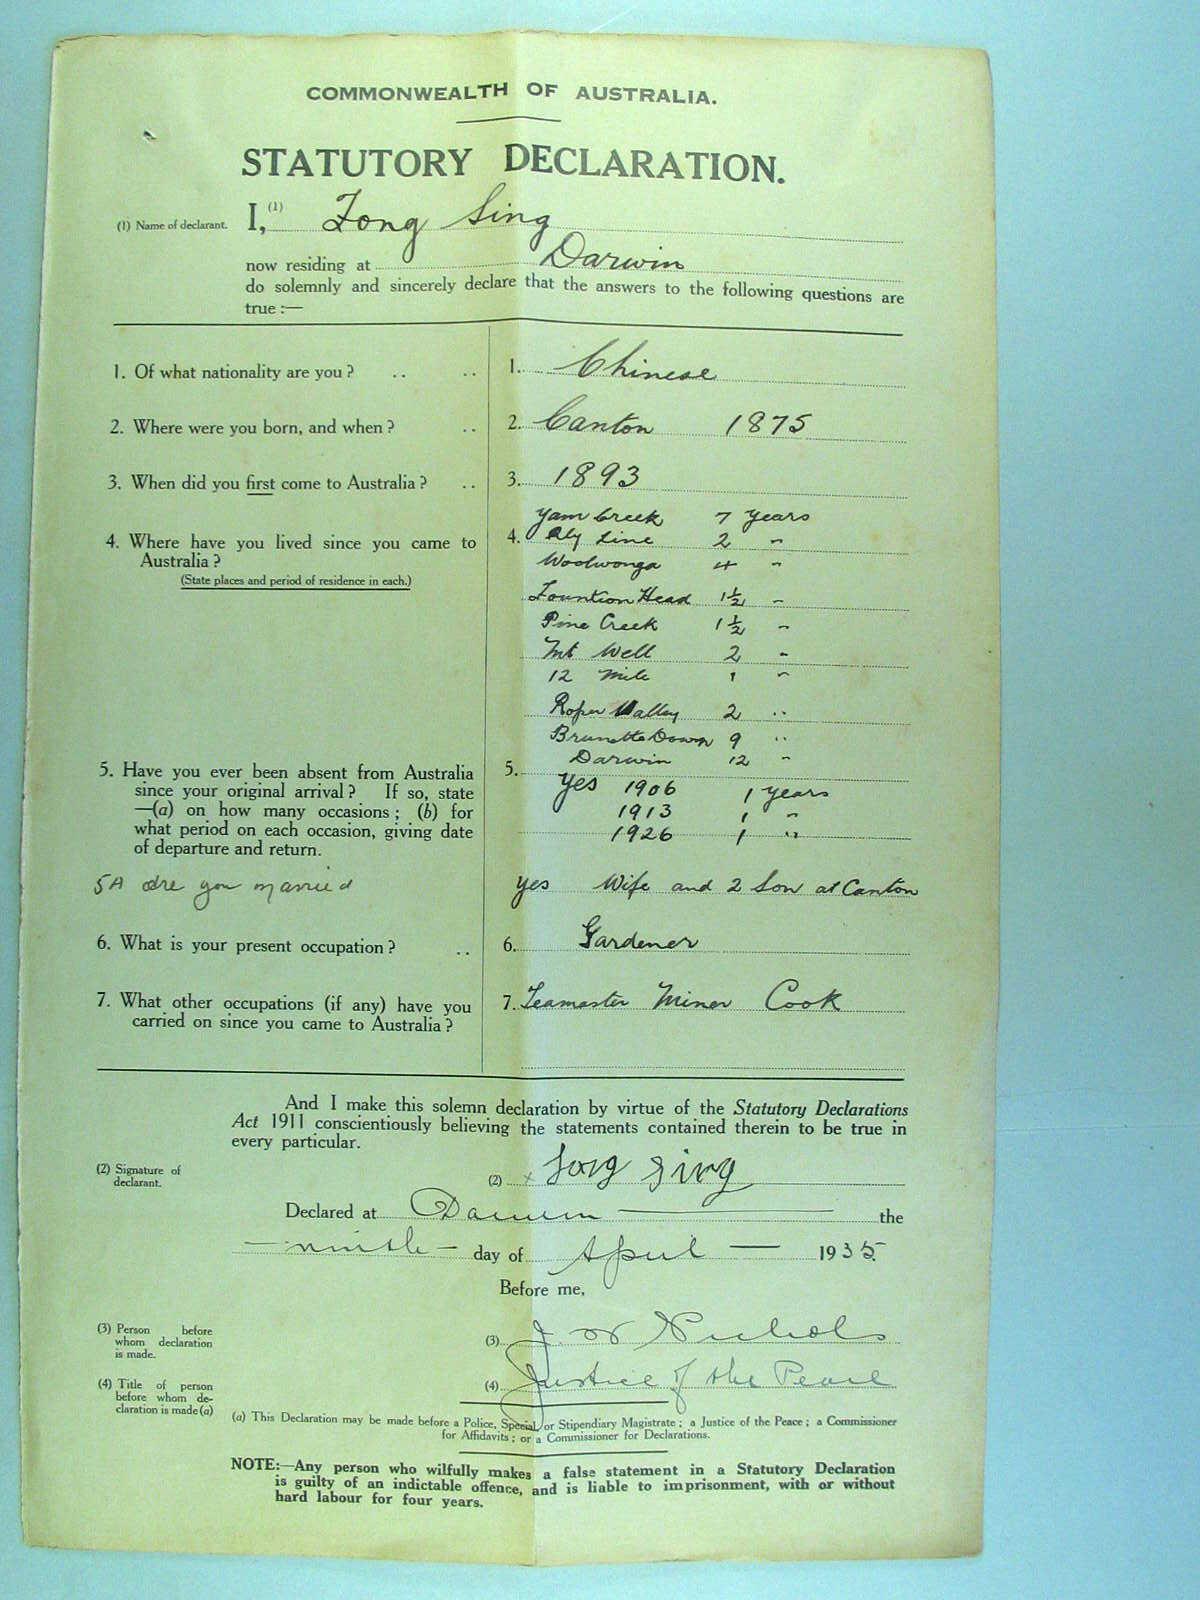 COMMONWEALTH OF AUSTRALIA.
STATUTORY DECLARATION.
(1) Name of declarant. I,(1) Fong Sing
now residing at Darwin
do solemnly and sincerely declare that the answers to the following questions are
true :—
1. Of what nationality are you ? .. .. 1. Chinese
2. Where were you born, and when ? .. 2. Canton 1875
3. When did you first come to Australia ? .. 3. 1893
Yam Creek 7 years
4. Where have you lived since you came to 4. Rly Line 2 "
Australia ? Woolwonga 4 "
(State places and period of residence in each.)
Fountion Head 1½ "
Pine Creek 1½ "
Mt Well 2 "
12 Mile 1 "
Roper Valley 2 "
Brunette Down 9 "
Darwin 12 "
5. Have you ever been absent from Australia 5.
since your original arrival ? If so, state Yes 1906 1 years
—(a) on how many occasions ; (b) for 1913 1 "
what period on each occasion, giving date 1926 1 "
of departure and return.
5A Are you married yes Wife and 2 Son at Canton
6. What is your present occupation ? .. 6. Gardener
7. What other occupations (if any) have you 7. Teamaster Miner Cook
carried on since you came to Australia ?
And I make this solemn declaration by virtue of the Statutory Declarations
Act 1911 conscientiously believing the statements contained therein to be true in
every particular.
(2) Signature of
declarant.
(2) x Fong Sing
Declared at Darwin the
ninth day of April 1935.
Before me,
(3) Person before
whom declaration
is made.
(3) J W Nichols
(4) Title of person
before whom de-
claration is made (a)
(4) Justice of the Peace
(a) This Declaration may be made before a Police, Special, or Stipendiary Magistrate ; a Justice of the Peace ; a Commissioner
for Affidavits ; or a Commissioner for Declarations.
NOTE:—Any person who wilfully makes a false statement in a Statutory Declaration
is guilty of an indictable offence, and is liable to imprisonment, with or without
hard labour for four years.